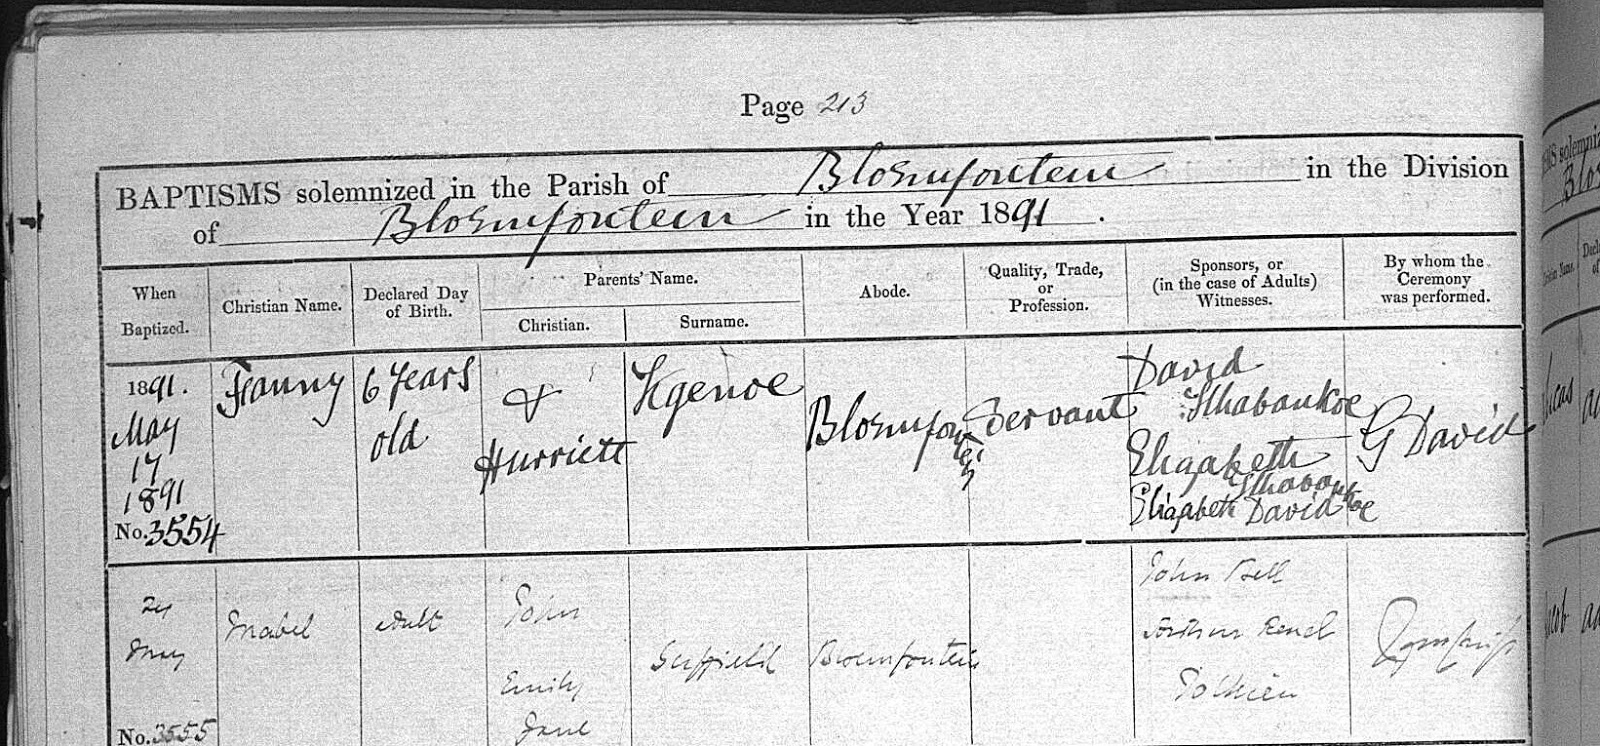 Page 213
BAPTISMS solemnized in the Parish of Bloemfontein in the Division
of Bloemfontein in the Year 1891.
When Baptized.
Christian Name.
Declared Day of Birth.
Parents' Name.
Christian.
Surname.
Abode.
Quality, Trade, or Profession.
Sponsors, or (in the case of Adults) Witnesses.
By whom the Ceremony was performed.
1891.
May
17
1891
No. 3554
Fanny
6 Years
old
&
Hurriett
Kgenoe
Bloemfontein
Servant
David
Elizabeth
Elizabeth David
G David
May
No. 3555
Mabel
adult
John
Emily
Jane
Suffield
Bloemfontein
John Bell
Arthur Reuel
Tolkien